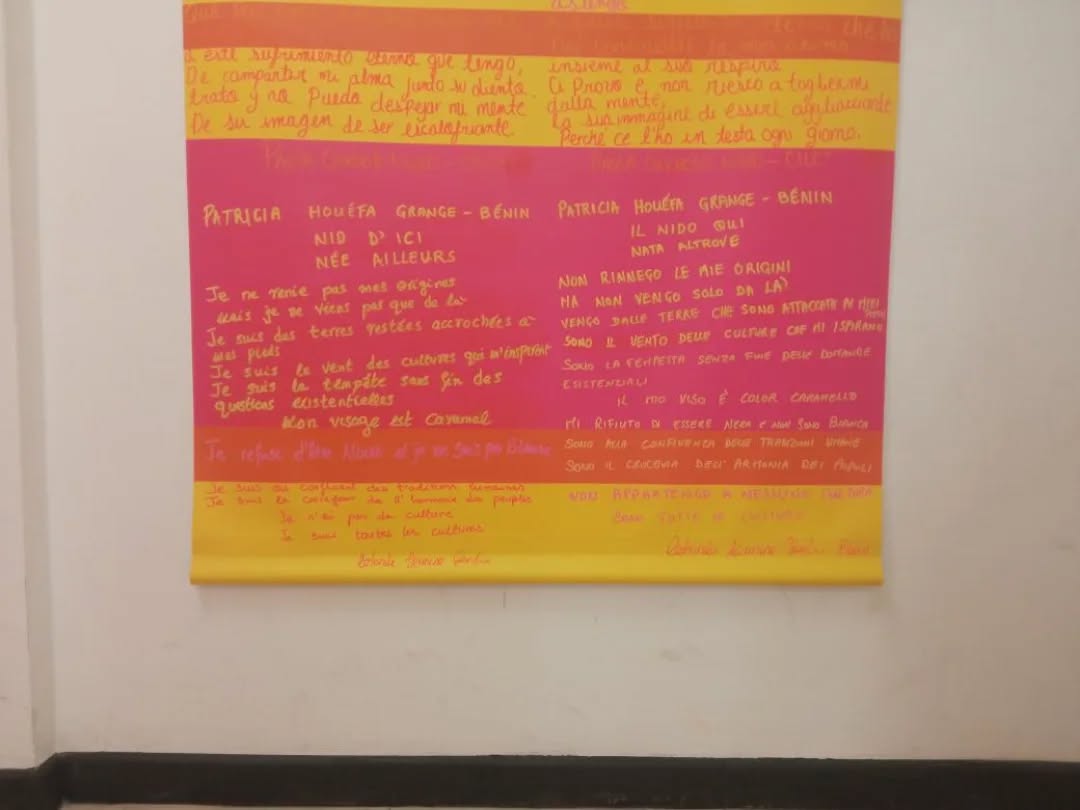 a este sufrimiento eterno que tengo,
De compartir mi alma junto su aliento.
trato y no Puedo despejar mi mente
De su imagen de ser escalofriante.
insieme al suo respiro
Ci Provo e non riesco a togliermi
dalla mente,
la sua immagine di essere agghiacciante
Perché ce l'ho in testa ogni giorno.
PATRICIA HOUÉFA GRANGE - BÉNIN
NID D'ICI
NÉE AILLEURS
Je ne renie pas mes origines
mais je ne viens pas que de là
Je suis des terres restées accrochées à
mes pieds
Je suis le vent des cultures qui m'inspirent
Je suis la tempête sans fin des
questions existentielles
Mon visage est caramel
Je refuse d'être Noire et je ne suis pas Blanche
Je suis au confluent des traditions humaines
Je suis le carrefour de l'harmonie des peuples
Je n'ai pas de culture
Je suis toutes les cultures
PATRICIA HOUÉFA GRANGE - BÉNIN
IL NIDO QUI
NATA ALTROVE
NON RINNEGO LE MIE ORIGINI
MA NON VENGO SOLO DA LÀ
VENGO DALLE TERRE CHE SONO ATTACCATE AI MIEI
PIEDI
SONO IL VENTO DELLE CULTURE CHE MI ISPIRANO
SONO LA TEMPESTA SENZA FINE DELLE DOMANDE
ESISTENZIALI
IL MIO VISO È COLOR CARAMELLO
MI RIFIUTO DI ESSERE NERA E NON SONO BIANCA
SONO ALLA CONFLUENZA DELLE TRADIZIONI UMANE
SONO IL CROCEVIA DELL'ARMONIA DEI POPOLI
NON APPARTENGO A NESSUNA CULTURA
SONO TUTTE LE CULTURE